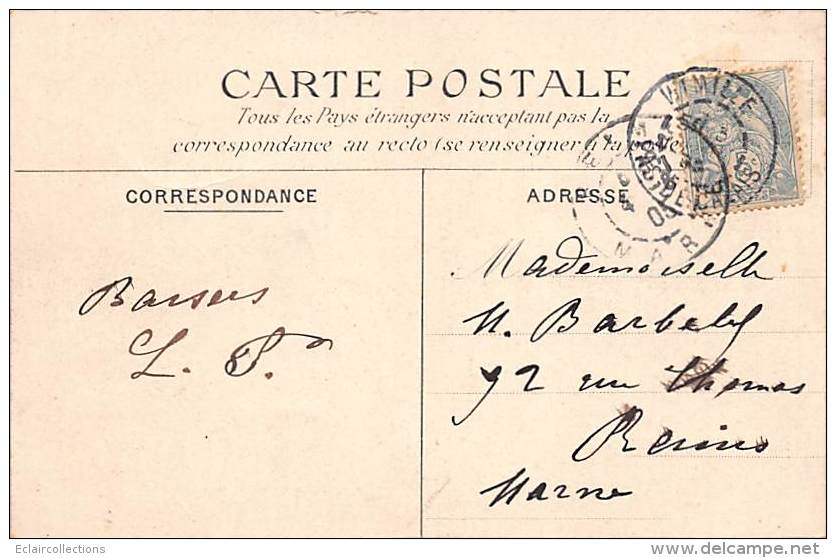 CARTE POSTALE
Tous les Pays étrangers n'acceptant pas la
correspondance au recto (se renseigner à la poste)
CORRESPONDANCE
ADRESSE
WIMILLE
PAS-DE-CALAIS
MAR
Baisers
L. P.
Mademoiselle
M. Barbelet
92 rue Thomas
Reims
Marne
Eclaircollections
©delcampe.net